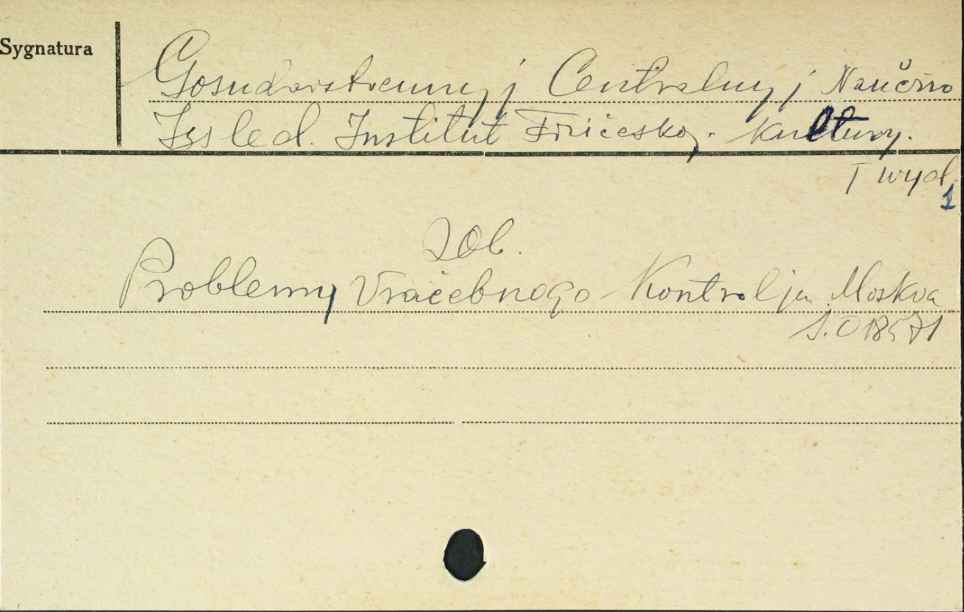 Sygnatura
Gosudarstvennyj Centralnyj Naučno
Issled. Institut Fizičeskoj. Kultury.
I wyd.
1
Zob.
Problemy Vračebnogo Kontrolja Moskva
S.O 18571